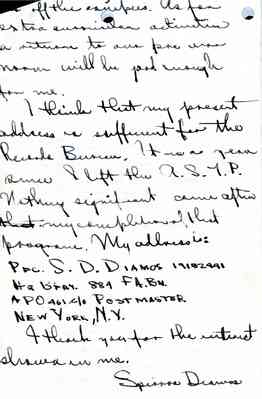 off the campus. As far
as extra curricular activities
a return to our pre war
norm will be good enough
for me.
I think that my present
address is sufficient for the
Records Bureau. It is a year
since I left the A.S.T.P.
Nothing significant came after
that my completion of that
program. My address is:
PFC. S. D. DIAMOS 19182441
HQ BTRY. 884 F.A.BN.
APO 461 c/o POSTMASTER
NEW YORK, N.Y.
I thank you for the interest
showed in me.
Spiros Diamos